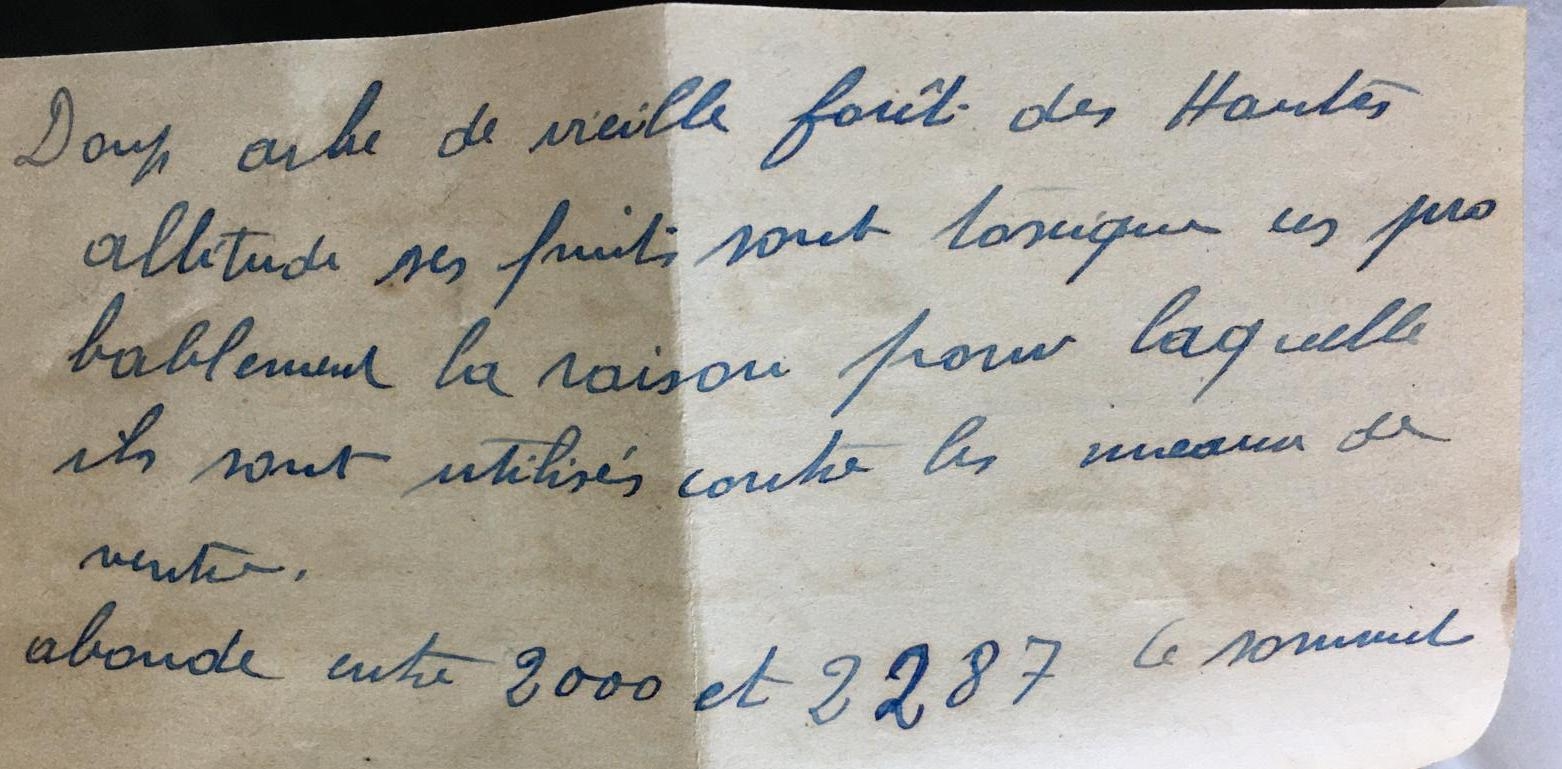 Doup arbe de vieille forêt des Hautes
altitude ses fruits sont toxique ces pro
bablement la raison pour laquelle
ils sont utilisés contre les meaux de
ventre.
abonde entre 2000 et 2287 le sommet